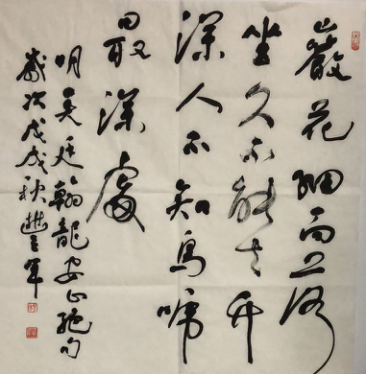 巖花細雨落
坐久不能去竹
深人不知鳥啼
最深處
明吳廷翰龍安山絕句
歲次戊戌秋軍